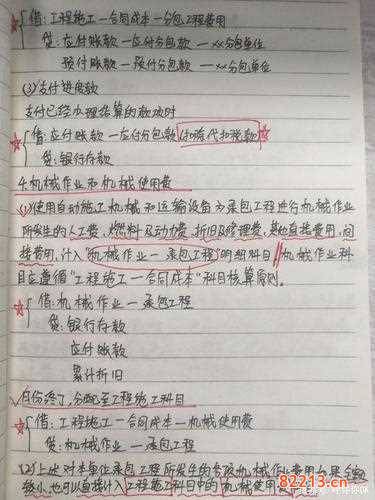 借:工程施工—合同成本—分包工程费用
贷:应付账款—应付分包款—xx分包单位
预付账款—预付分包款—xx分包单位
(3)支付进度款
支付已经办理结算的款项时
借:应付账款—应付分包款(扣除代扣税款)
贷:银行存款
4.机械作业和机械使用费
(1)使用自动施工机械和运输设备为承包工程进行机械作业
所发生的人工费,燃料及动力费,折旧及修理费,其他直接费用,间
接费用,计入"机械作业—承包工程"明细科目 机械作业科
目应遵循"工程施工—合同成本"科目核算原则。
借:机械作业—承包工程
贷:银行存款
应付账款
累计折旧
月份终了,分配至工程施工科目
借:工程施工—合同成本—机械使用费
贷:机械作业—承包工程
(2)上述对本单位承包工程所发生的各项机械作业费用如果金额
较小,也可以直接计入工程施工科目中的机械使用
82213.cn